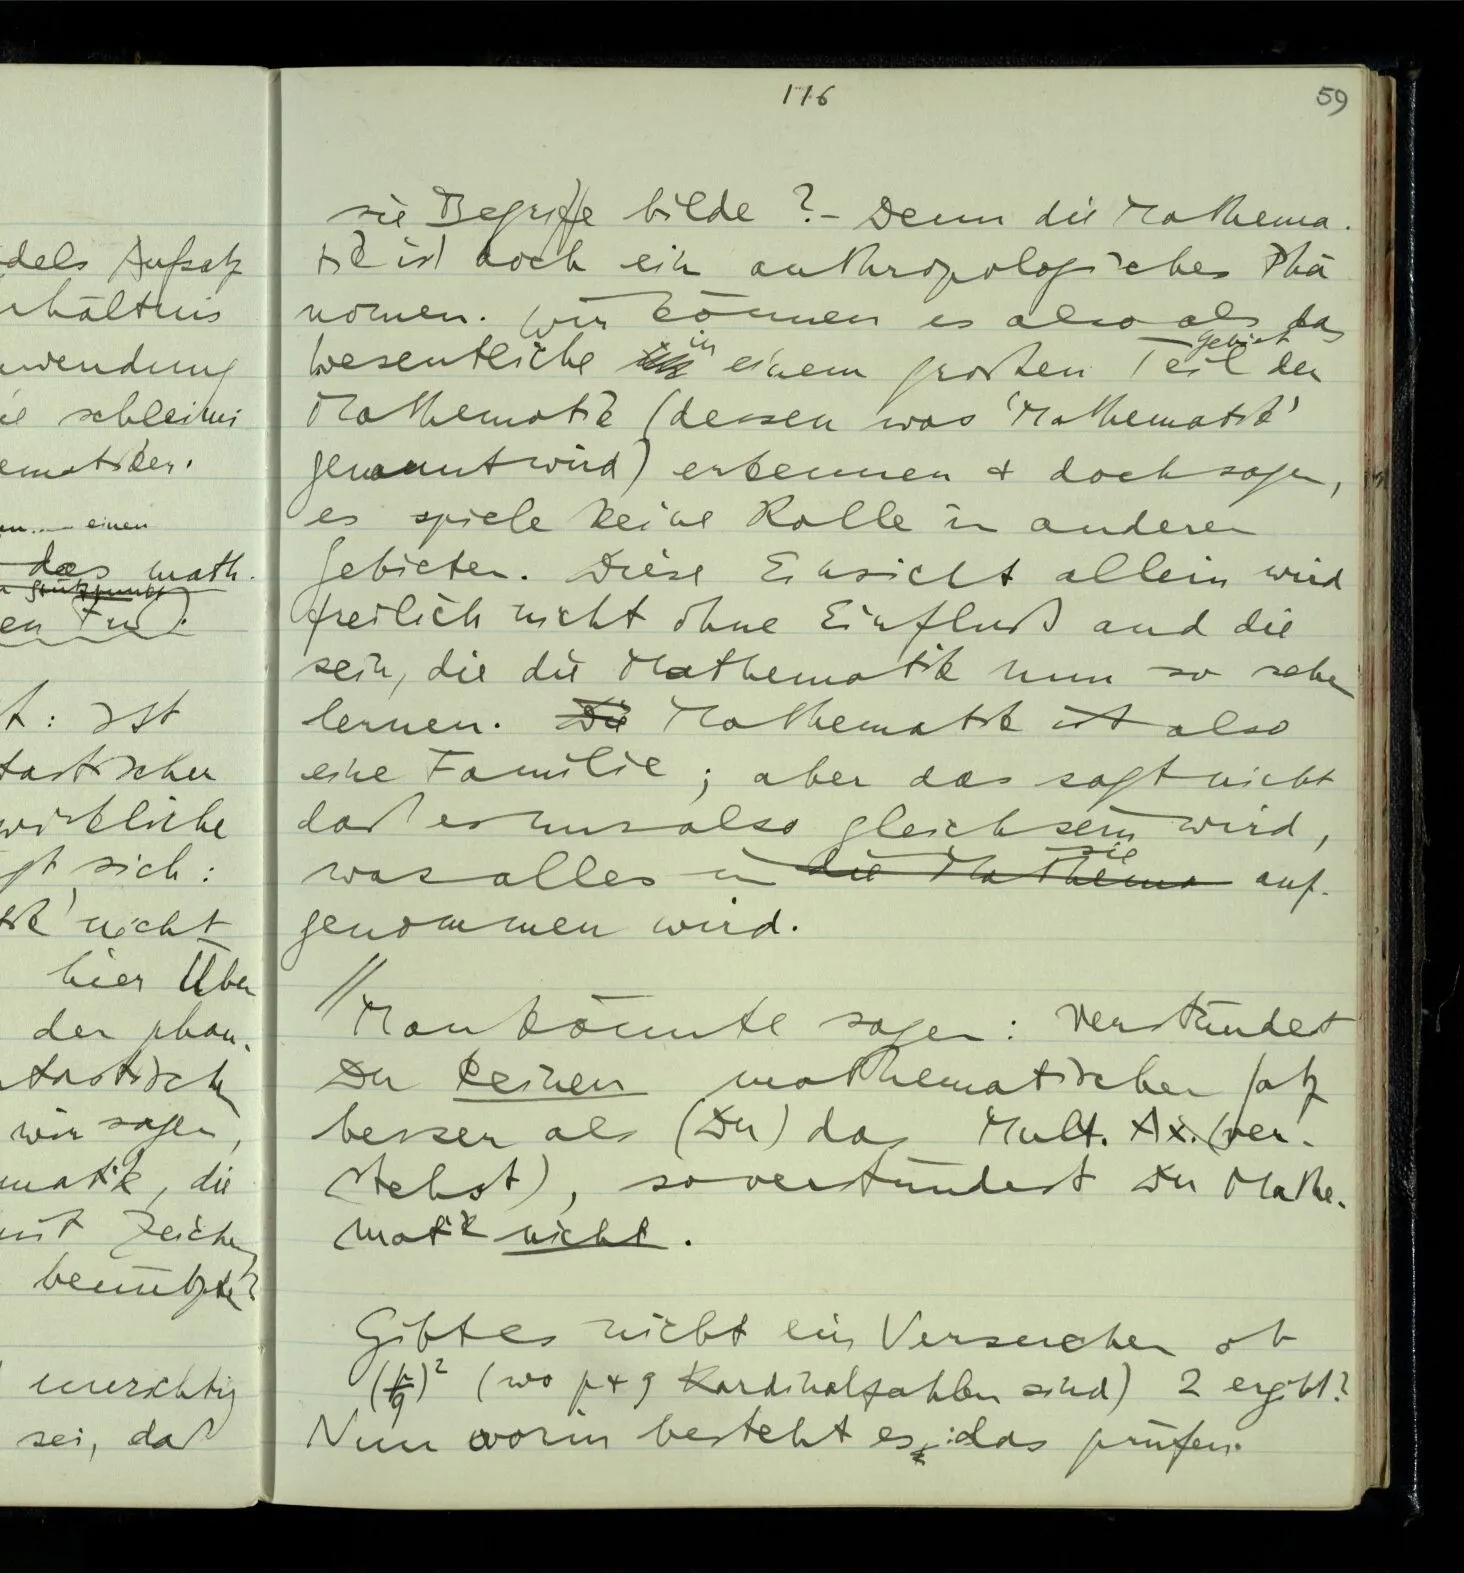 116
59
dels Aufsatz
rhältnis
nwendung
ie schleimi
ematiker.
en.... einen
das math.
Stützpunkt
en Fuß).
t: Ist
tastischer
wirkliche
gt sich:
tik' nicht
hier Über
der phan-
ntastisch
wir sagen,
matik, die
mit Zeichen
benützte?
unrichtig
sei, daß
sie Begriffe bilde? – Denn die Mathema-
tik ist doch ein anthropologisches Phä
nomen. Wir können es also als das
Wesentliche in einem großen Teil Gebiet der
Mathematik (dessen was 'Mathematik'
genannt wird) erkennen & doch sagen,
es spiele keine Rolle in anderen
Gebieten. Diese Einsicht allein wird
freilich nicht ohne Einfluß auf die
sein, die die Mathematik nun so sehen
lernen. Die Mathematik ist also
eine Familie; aber das sagt nicht
daß es uns also gleich sein wird,
was alles in die Mathema sie auf-
genommen wird.
// Man könnte sagen: Verstündest
Du keinen mathematischen Satz
besser als (Du) das Mult. Ax. (ver-
stehst), so verstündest Du Mathe-
matik nicht.
Gibt es nicht ein Versuchen ob
(p/q)² (wo p & q Kardinalzahlen sind) 2 ergibt?
Nun worin besteht es: das prüfen.